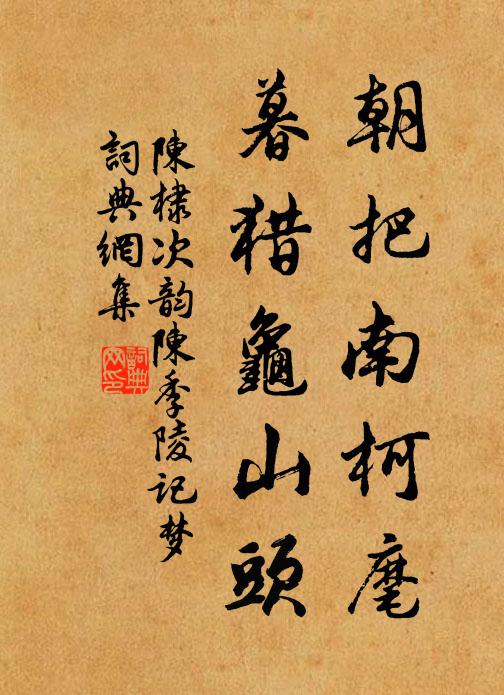 朝把南柯麾
暮猎龜山頭
陳棣次韵陳季陵记梦
詞典網集
詞典网印